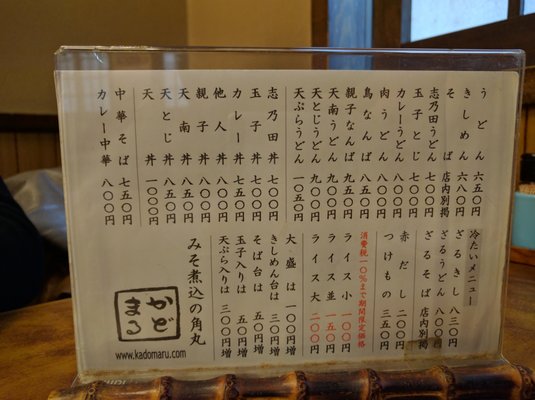 うどん 六五〇円
きしめん 六八〇円
そば 店内別掲
志乃田うどん 七〇〇円
玉子とじ 七〇〇円
カレーうどん 七五〇円
肉うどん 八〇〇円
鳥なんば 八五〇円
親子なんば 九五〇円
天南うどん 九〇〇円
天とじうどん 九〇〇円
天ぷらうどん 一〇五〇円
志乃田丼 七〇〇円
玉子丼 七〇〇円
カレー丼 七五〇円
他人丼 八〇〇円
親子丼 八〇〇円
天南丼 八五〇円
天とじ丼 八五〇円
天丼 一〇〇〇円
中華そば 七五〇円
カレー中華 八〇〇円
冷たいメニュー
ざるきし 八三〇円
ざるうどん 八〇〇円
ざるそば 店内別掲
赤だし 二〇〇円
つけもの 三五〇円
消費税一〇%まで期間限定価格
ライス小 一〇〇円
ライス並 一五〇円
ライス大 二〇〇円
大盛は 一〇〇円増
きしめん台は 三〇円増
そば台は 五〇円増
玉子入りは 五〇円増
天ぷら入りは 三〇〇円増
みそ煮込の角丸
かど
まる
www.kadomaru.com